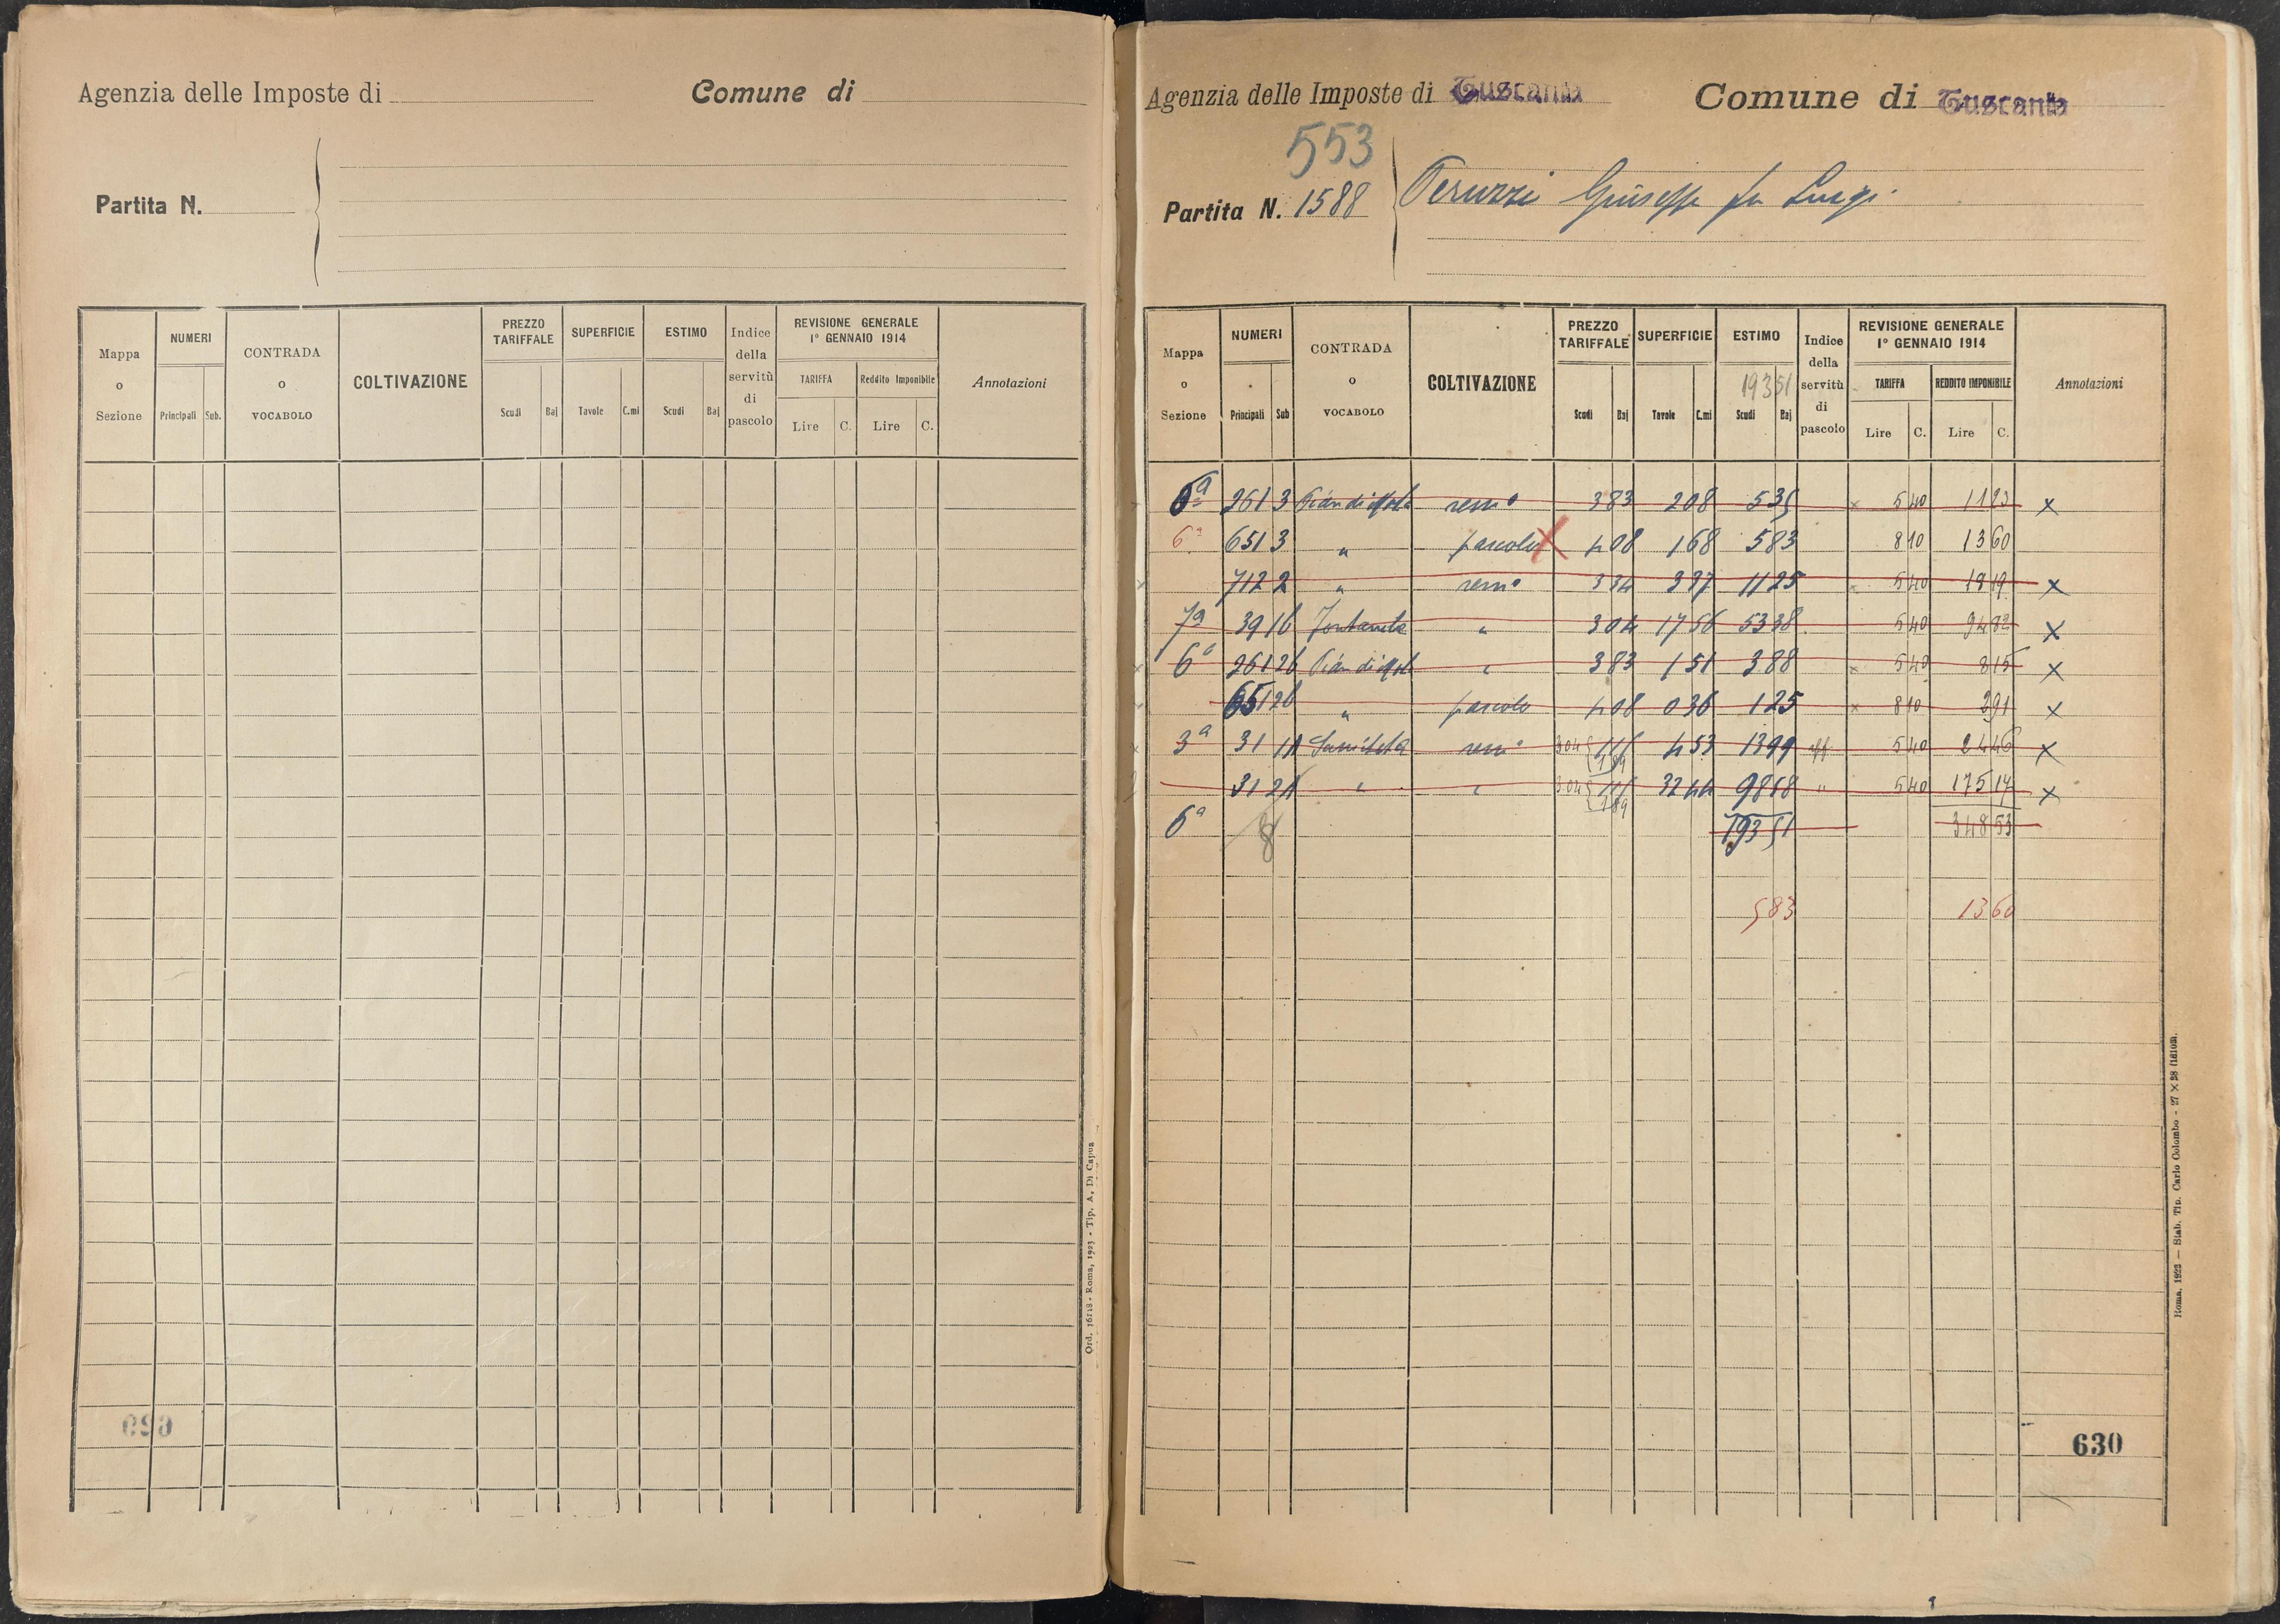 Agenzia delle Imposte di Comune di
Partita N.
Mappa o Sezione NUMERI Principali Sub. CONTRADA o VOCABOLO COLTIVAZIONE PREZZO TARIFFALE Scudi Baj SUPERFICIE Tavole C.mi ESTIMO Scudi Baj Indice della servitù di pascolo REVISIONE GENERALE 1° GENNAIO 1914 TARIFFA Lire C. Reddito Imponibile Lire C. Annotazioni
Ord. 16118 - Roma, 1923 - Tip. A. Di Capua
Agenzia delle Imposte di Tuscania Comune di Tuscania
553
Partita N. 1588 Peruzzi Giuseppe fu Luigi
Mappa o Sezione NUMERI Principali Sub CONTRADA o VOCABOLO COLTIVAZIONE PREZZO TARIFFALE Scudi Baj SUPERFICIE Tavole C.mi ESTIMO 193 51 Scudi Baj Indice della servitù di pascolo REVISIONE GENERALE 1° GENNAIO 1914 TARIFFA Lire C. REDDITO IMPONIBILE Lire C. Annotazioni
6ª 261 3 Pian di 3 83 2 08 5 35 x 5 40 11 23 x
6ª 651 3 " pascolo X 4 08 1 68 5 83 8 10 13 60
712 2 " 3 34 3 37 11 25 5 40 18 19 x
7ª 39 16 " 3 04 17 56 53 38 5 40 94 82 x
6ª 261 26 Pian di " 3 83 1 51 3 88 x 5 40 8 15 x
651 26 " pascolo 4 08 0 36 1 25 x 8 10 2 91 x
3ª 31 1A 3 04 4 53 13 99 5 40 24 46 x
31 2A " " 3 04 32 44 98 68 " 5 40 175 17 x
6ª 8 193 51 348 53
5 83 13 60
630
Roma, 1922 — Stab. Tip. Carlo Colombo - 27 X 38